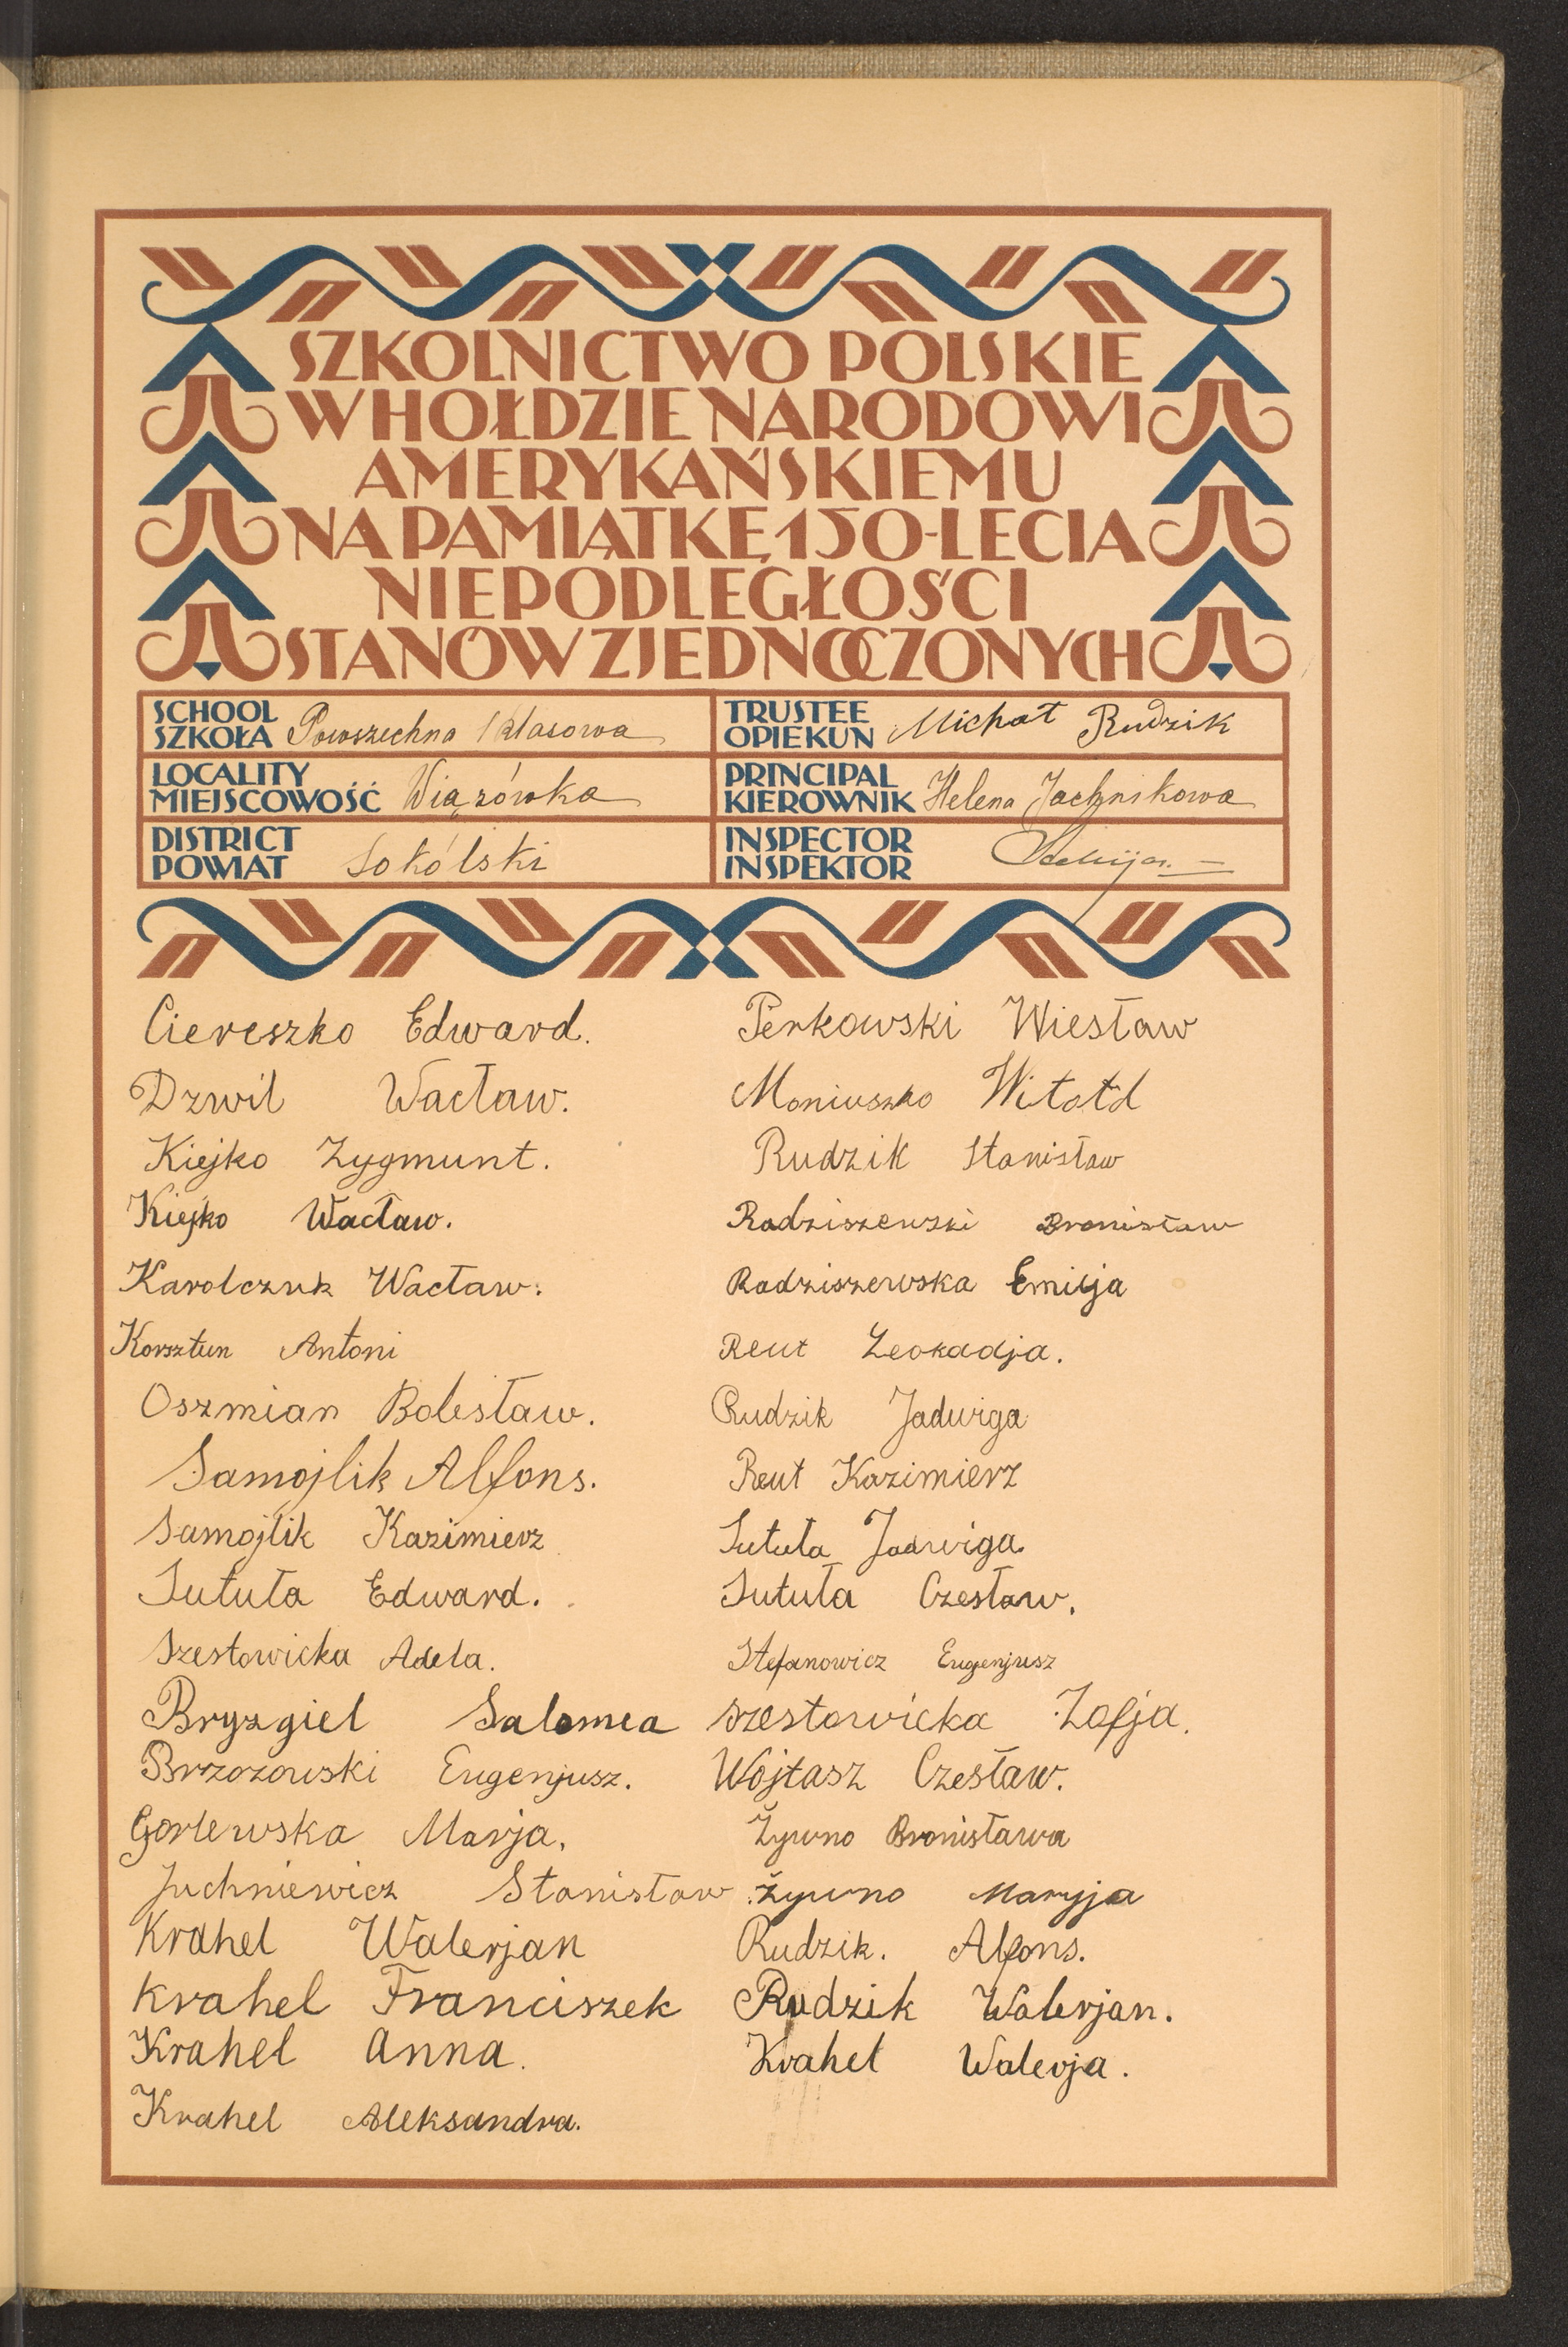 SZKOLNICTWO POLSKIE
W HOŁDZIE NARODOWI
AMERYKAŃSKIEMU
NA PAMIĄTKĘ 150-LECIA
NIEPODLEGŁOŚCI
STANÓW ZJEDNOCZONYCH
SCHOOL
SZKOŁA Powszechna 1 klasowa
TRUSTEE
OPIEKUN Michał Rudzik
LOCALITY
MIEJSCOWOŚĆ Wiązówka
PRINCIPAL
KIEROWNIK Helena Jachnikowa
DISTRICT
POWIAT Sokólski
INSPECTOR
INSPEKTOR
Ciereszko Edward.
Dzwil Wacław.
Kiejko Zygmunt.
Kiejko Wacław.
Karolczuk Wacław.
Korsztun Antoni
Oszmian Bolesław.
Samojlik Alfons.
Samojlik Kazimierz
Sutuła Edward.
Szestowicka Adela.
Bryzgiel Salomea
Brzozowski Eugenjusz.
Gorlewska Marja.
Juchniewicz Stanisław
Krahel Walerjan
Krahel Franciszek
Krahel Anna.
Krahel Aleksandra.
Perkowski Wiesław
Moniuszko Witołd
Rudzik Stanisław
Radziszewski Bronisław
Radziszewska Emilja
Reut Leokadja.
Rudzik Jadwiga
Reut Kazimierz
Sutuła Jadwiga.
Sutuła Czesław.
Stefanowicz Eugenjusz
Szestowicka Zofja.
Wojtasz Czesław.
Żywno Bronisława
Żywno Maryja
Rudzik. Alfons.
Rudzik Walerjan.
Krahel Walerja.